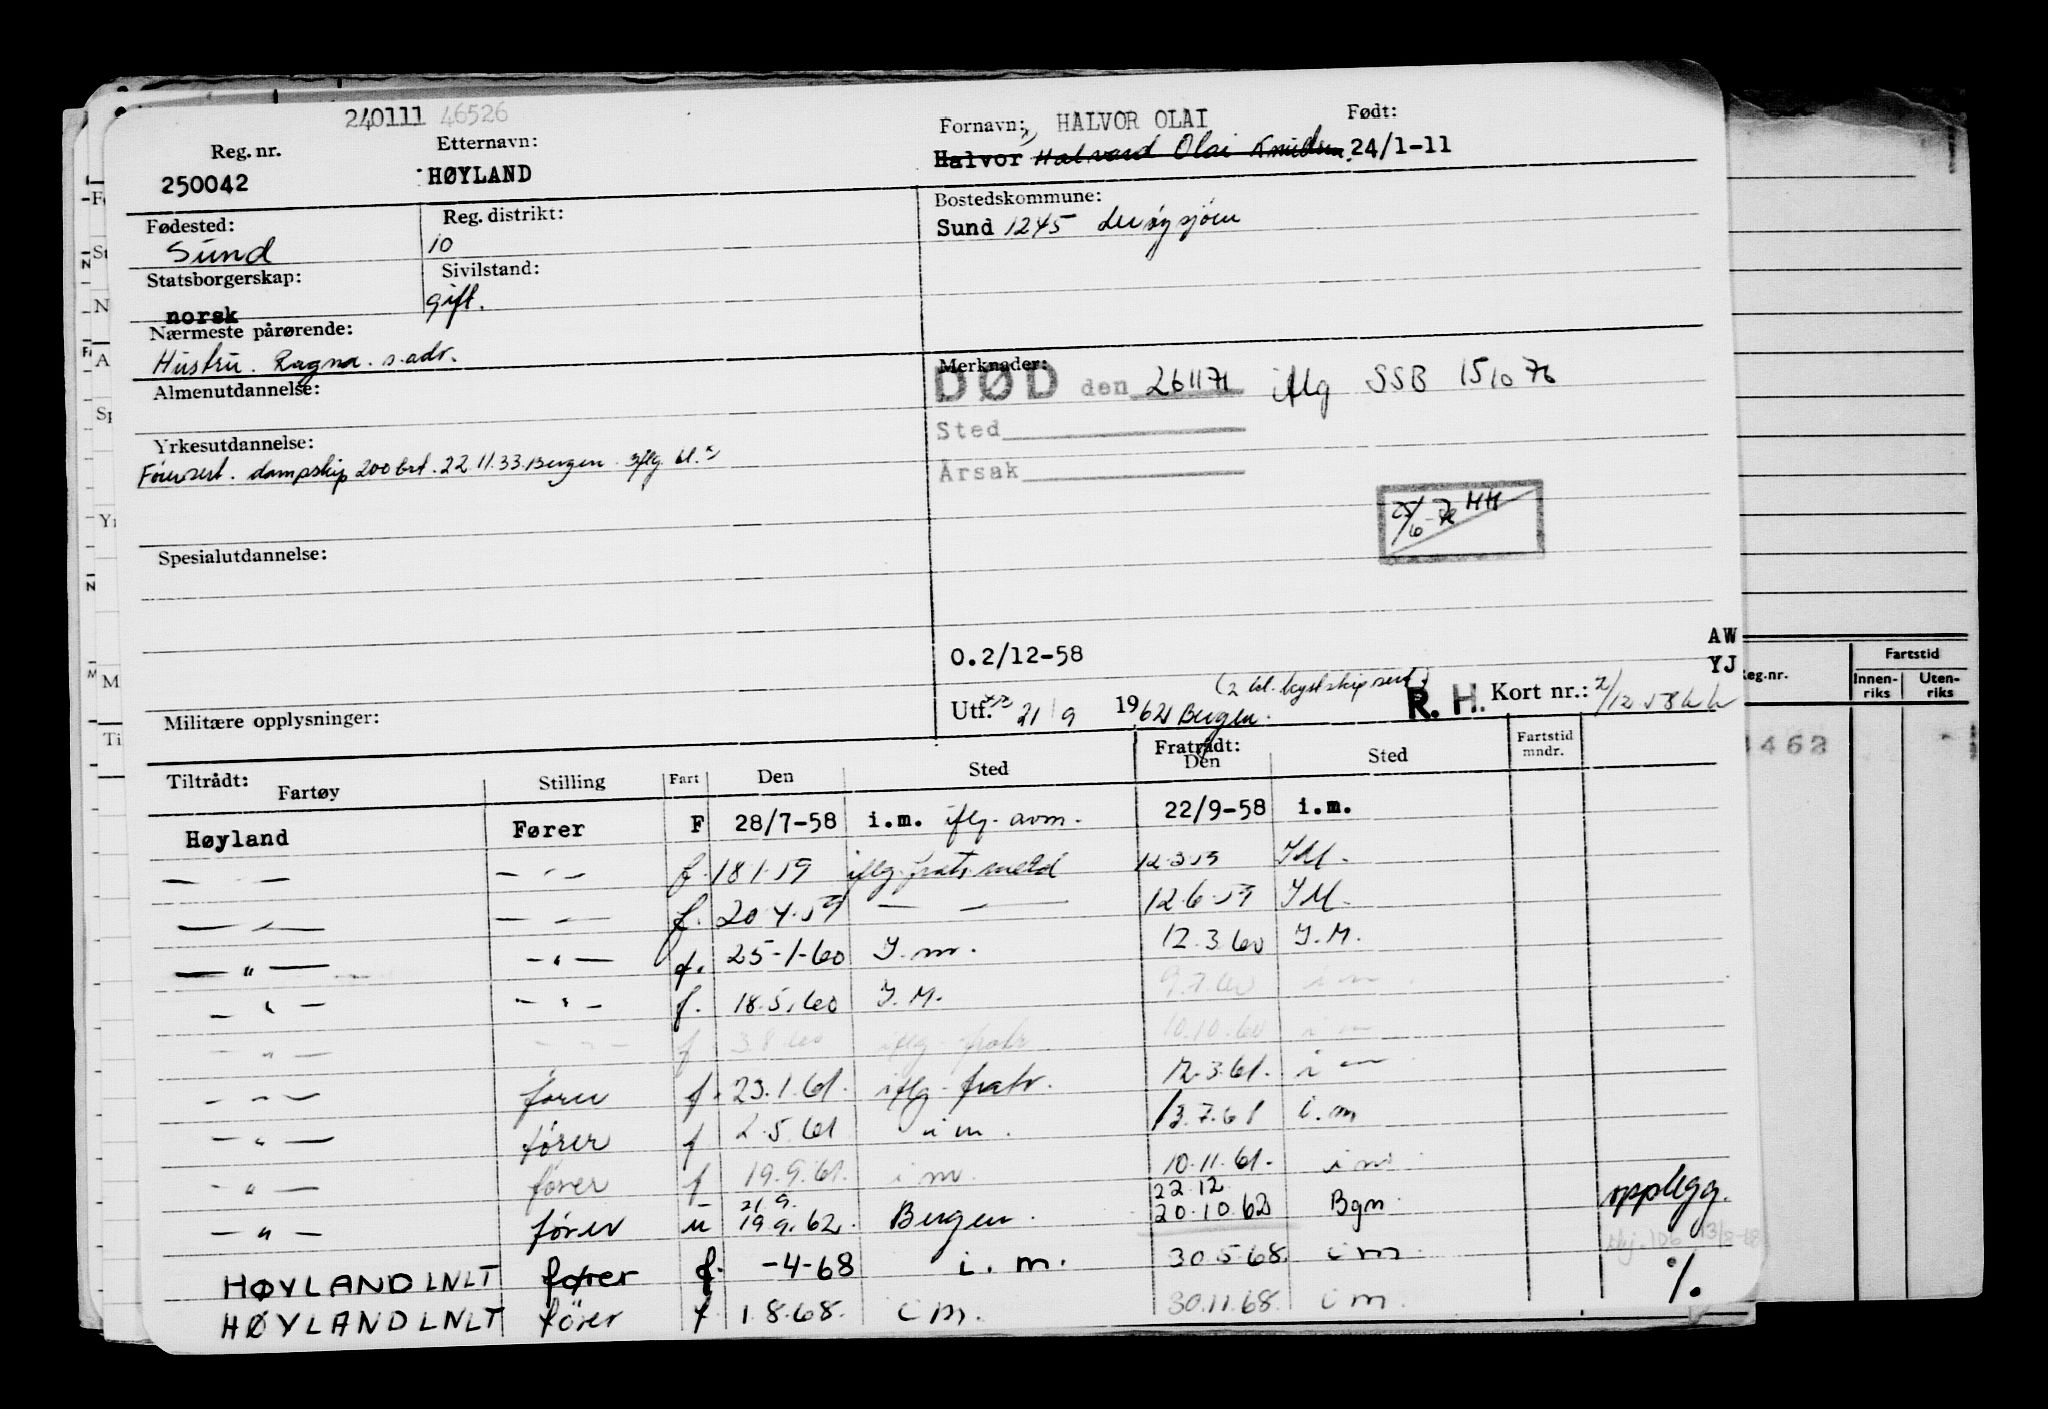 240111 46526
Reg. nr. Etternavn: Fornavn: HALVOR OLAI Født:
250042 HØYLAND Halvor Halvard Olai Knudsen 24/1-11
Fødested: Reg. distrikt: Bostedskommune:
Sund 10 Sund 1245
Statsborgerskap: Sivilstand:
norsk gift.
Nærmeste pårørende:
Hustru. Ragna. s. adr.
Merknader:
DØD den 261171 iflg SSB 151076
Sted
Årsak
Almenutdannelse:
Yrkesutdannelse:
dampskip 200 brt. 22.11.33. Bergen.
25/6-76 HH
Spesialutdannelse:
AW
YJ
O.2/12-58
(2 kl. kystskip sert.)
Militære opplysninger: Utf. 21/9 1962 Bergen. R. H. Kort nr.: 2/12 58
Tiltrådt: Fratrådt:
Fartøy Stilling Fart Den Sted Den Sted Fartstid mndr.
Høyland Fører F 28/7-58 i.m. iflg. avm. 22/9-58 i.m.
— " — — " — f. 18.1.59 iflg. fratr. meld 12.3.59 I.M.
— " — — " — f. 20.4.59 — " — 12.6.59 I.M.
— " — — " — f. 25-1-60 I.m. 12.3.60 I.M.
— " — — " — f. 18.5.60 I.M. 9.7.60 i m
— " — — " — f 3.8.60 iflg. fratr. 10.10.60 i m
— " — fører f. 23.1.61. iflg. fratr. 12.3.61. i m
— " — fører f 2.5.61 i m. 13.7.61 i.m
— " — fører f 19.9.61. i m. 10.11.61. i m
21 9. 22.12
— " — fører u 19 9. 62. Bergen. 20.10.62 Bgn. opplegg.
HØYLAND LNLT fører f. -4-68 i. m. 30.5.68. i m.
HØYLAND LNLT fører f 1.8.68. i m. 30.11.68. i m. %.
Reg.nr. Fartstid
Innen-riks Uten-riks
462